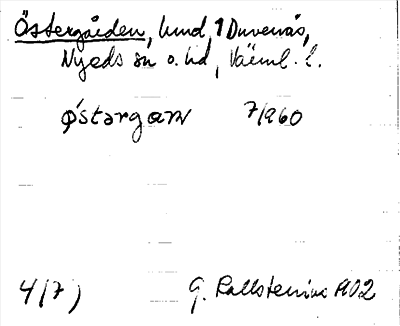 Östergården, lund, 1 Duvenäs,
Nyeds sn o. hd, Värml. l.
østərgaɳ 7/960
4(7) G. Kallstenius 1902